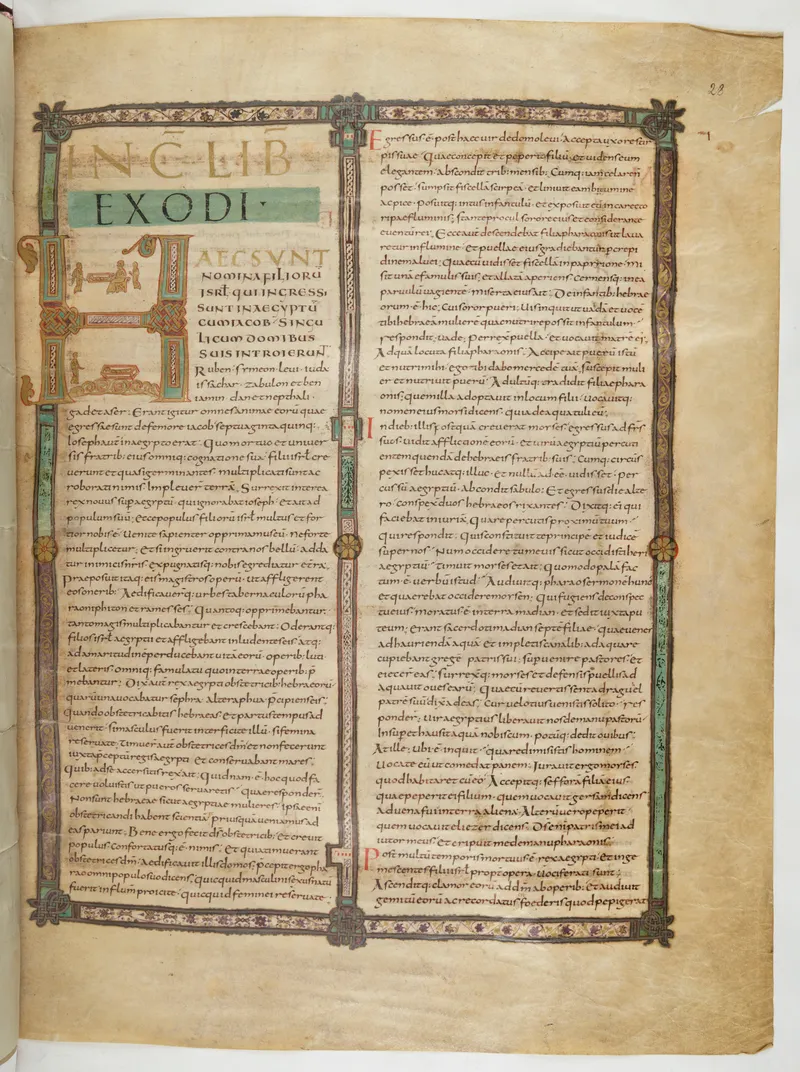 28
INC̄ LIB̄
EXODI·
HAEC SVNT
NOMINA FILIORŪ
ISRŁ QUI INGRESSI
SUNT IN AEGYPTŪ
CUM IACOB· SINGU
LI CUM DOMIBUS
SUIS INTROIERUNT
Ruben· symeon· leui· iuda
issachar· zabulon et ben
iamin dan et nepthali·
gad et aser· Erant igitur omnes animae eorū quae
egressae sunt de femore iacob septuaginta quinq:
Ioseph aut̄ in aegypto erat· Quo mortuo et uniuer
sis fratrib: eius omniq: cognatione sua· filii isrł cre
uerunt et quasi germinantes multiplicati sunt ac
roborati nimis impleuer̄ terrā· Surrexit interea
rex nouus sup aegyptū· qui ignorabat ioseph· et ait ad
populum suū; ecce populus filiorū isrł multus et for
tior nobis ē· Uenite sapienter opprimamus eū· ne forte
multiplicetur; et si ingruerit contra nos bellū· adda
tur inimicis nr̄is expugnatisq: nobis egrediatur e terra;
Praeposuit itaq: eis magistros operū· ut affligerent
eos onerib: Aedificauer̄q: urbes tabernaculorū pha
raoni phiton et ramesses· Quantoq: opprimebantur·
tanto magis multiplicabantur et crescebant; Oderantq:
filios isrł aegyptii et affligebant inludentes eis atq:
ad amaritudinē perducebant uitā eorū· operib: luti
et lateris omniq: famulatu quo in terrae operib: p̄
mebantur; Dixit aut̄ rex aegypti obstetricib: hebraeorū·
quarū una uocabatur sephra· altera phua· p̄cipiens eis;
Quando obstetricabitis hebraeas et partus tempus ad
uenerit· si masculus fuerit interficite illū· si femina
reseruate; timuer̄ aut̄ obstetrices dm̄ et non fecerunt
iuxta p̄ceptū regis aegypti· et conseruabant mares;
Quib: ad se accersitis rex ait; Quidnam ē· hoc quod fa
cere uoluistis ut pueros seruaretis· quae responder̄;
Non sunt hebraeae sicut aegyptiae mulieres; ipsae enī
obstetricandi habent scientiā· priusquā ueniamus ad
eas pariunt; Bene ergo fecit ds̄ obstetricib: et creuit
populus confortatusq: ē· nimis; Et quia timuerant
obstetrices dm̄· aedificauit illis domos; p̄cepit ergo pha
rao omni populo suo dicens; quicquid masculini sexus natū
fuerit in flumen proicite· quicquid feminei reseruate·
Egressus ē· post haec uir de domo leui· accepta uxore stir
pis suae· Quae concepit et peperit filiū; et uidens eum
elegantem· abscondit trib: mensib: Cumq: iam celare n̄
posset· sumpsit fiscellā scirpeā· et liniuit eam bitumine
ac pice· posuitq: intus infantulū· et exposuit eū in carecto
ripae fluminis; stante procul sorore eius et considerante
euentū rei; Ecce aut̄ descendebat filia pharaonis ut laua
retur in flumine· et puellae eius gradiebantur p crepi
dinem aluei; Quae cū uidisset fiscellā in papyrione· mi
sit unā e famulis suis; et allatā aperiens cernensq: in ea
paruulū uagiente· miserta eius ait; De infantib: hebrae
orum ē· hic; Cui soror pueri; Uis inquit ut uadā et uocē
tibi hebraeā mulierē quae nutrire possit infantulum·
respondit; uade; perrexit puella· et uocauit matrē ei';
Ad quā locuta filia pharaonis; Accipe ait puerū istū
et nutri mihi· ego tibi dabo mercedē tuā; suscepit muli
er et nutriuit puerū· Adultūq: tradidit filiae phara
onis; quem illa adoptauit in locum filii· uocauitq:
nomen eius morsi dicens; quia de aqua tuli eū;
In dieb: illis postquā creuerat morses· egressus ad fr̄s
suos· uidit afflictionē eorū· et uirū aegyptiū percuti
entem quenda de hebraeis fratrib: suis; Cumq: circūs
pexisset huc atq: illuc· et nullū adēē uidisset· per
cussū aegyptiū abscondit sabulo; Et egressus die alte
ro· conspexit duos hebraeos rixantes; Dixitq: ei qui
faciebat iniuriā; Quare percutis proximū tuum·
qui respondit; Quis constituit te principē et iudicē
super nos· Num occidere tu me uis sicut occidisti heri
aegyptiū· timuit morses et ait; Quomodo palā fac
tum ē· uerbū istud· Audiuitq: pharao sermonē hunc
et quaerebat occidere morsen; Qui fugiens de conspec
tu eius moratus ē· in terra madian· et sedit iuxta pu
teum; erant sacerdoti madian septē filiae· quae uener̄
ad hauriendā aquā· et impletis canalib: adaquare
cupiebant gregē patris sui; superuenere pastores· et
eiecer̄ eas; surrexitq: morses· et defensis puellis ad
aquauit oues earū; Quae cū reuertissent ad raguel
patrē suū dix̄ ad eas; Cur uelotius uenistis solito· res
ponder̄; uir aegyptius liberauit nos de manu pastorū·
Insup et hausit aquā nobiscum· potūq: dedit ouibus;
At ille; Ubi ē· inquit· quare dimisistis hominem·
Uocate eū ut comedat panem; Iurauit ergo morses·
quod habitaret cū eo· Accepitq: seffora filiā eius·
quae peperit ei filium· quem uocauit gersam dicens;
Aduena fui in terra aliena; Alterū uero peperit·
quem uocauit eliezer dicens; Ds̄ enī patris mei ad
iutor meus· et eripuit me de manu pharaonis;
Post multū temporis mortuus ē· rex aegypti· et inge
mescentes filii isrł· ppt opera uociferati sunt;
Ascenditq: clamor eorū ad dm̄ ab operib: et audiuit
gemitū eorū ac recordatus foederis quod pepigerat